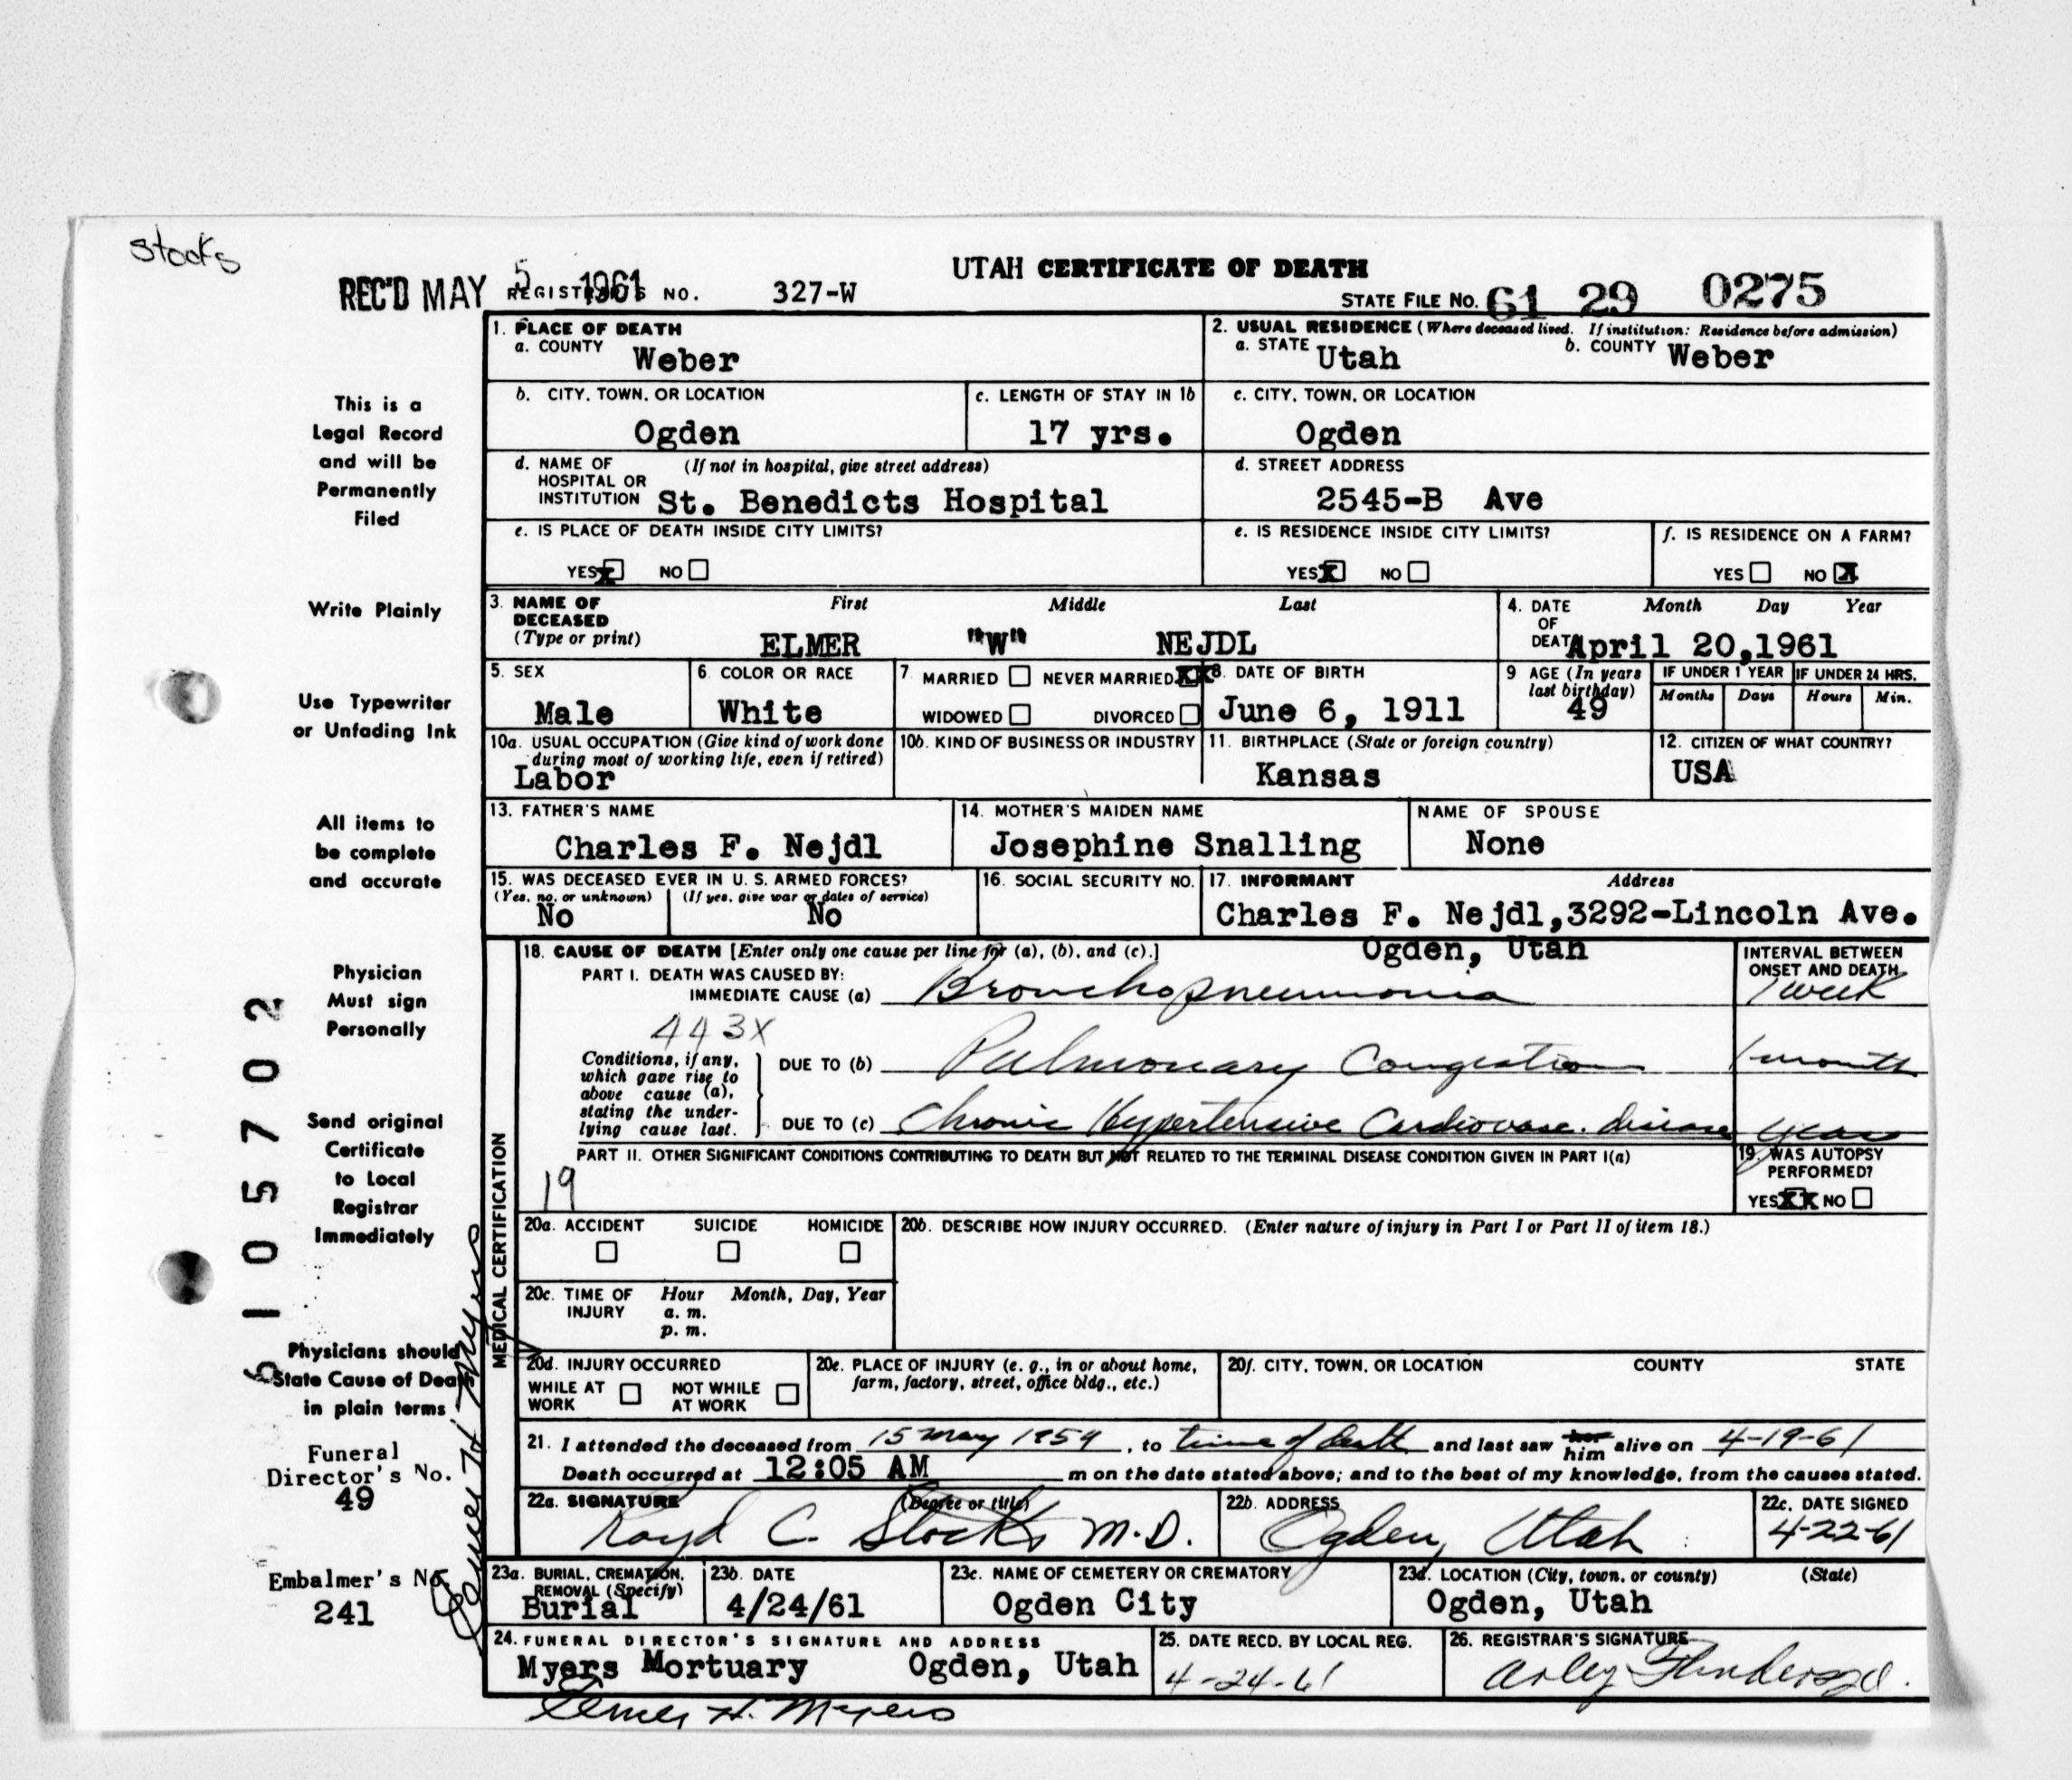 Stocks
UTAH CERTIFICATE OF DEATH
REC'D MAY 5 1961 REGISTRAR'S NO. 327-W STATE FILE NO. 61 29 0275
1. PLACE OF DEATH
a. COUNTY Weber
2. USUAL RESIDENCE (Where deceased lived. If institution: Residence before admission)
a. STATE Utah b. COUNTY Weber
b. CITY, TOWN, OR LOCATION Ogden
c. LENGTH OF STAY IN 1b 17 yrs.
c. CITY, TOWN, OR LOCATION Ogden
d. NAME OF HOSPITAL OR INSTITUTION (If not in hospital, give street address) St. Benedicts Hospital
d. STREET ADDRESS 2545-B Ave
e. IS PLACE OF DEATH INSIDE CITY LIMITS?
YES X NO
e. IS RESIDENCE INSIDE CITY LIMITS?
YES X NO
f. IS RESIDENCE ON A FARM?
YES NO X
3. NAME OF DECEASED (Type or print) First Middle Last
ELMER "W" NEJDL
4. DATE OF DEATH Month Day Year
April 20,1961
5. SEX Male
6. COLOR OR RACE White
7. MARRIED NEVER MARRIED XX
WIDOWED DIVORCED
8. DATE OF BIRTH June 6, 1911
9 AGE (In years last birthday) 49
IF UNDER 1 YEAR Months Days
IF UNDER 24 HRS. Hours Min.
10a. USUAL OCCUPATION (Give kind of work done during most of working life, even if retired)
Labor
10b. KIND OF BUSINESS OR INDUSTRY
11. BIRTHPLACE (State or foreign country) Kansas
12. CITIZEN OF WHAT COUNTRY? USA
13. FATHER'S NAME Charles F. Nejdl
14. MOTHER'S MAIDEN NAME Josephine Snalling
NAME OF SPOUSE None
15. WAS DECEASED EVER IN U. S. ARMED FORCES?
(Yes, no, or unknown) No
(If yes, give war or dates of service) No
16. SOCIAL SECURITY NO.
17. INFORMANT Address
Charles F. Nejdl,3292-Lincoln Ave.
Ogden, Utah
18. CAUSE OF DEATH [Enter only one cause per line for (a), (b), and (c).]
INTERVAL BETWEEN ONSET AND DEATH
PART I. DEATH WAS CAUSED BY:
IMMEDIATE CAUSE (a) Bronchopneumonia 1 week
443X
Conditions, if any, which gave rise to above cause (a), stating the underlying cause last.
DUE TO (b) Pulmonary Congestion 1 month
DUE TO (c) Chronic Hypertensive Cardiovasc. disease years
PART II. OTHER SIGNIFICANT CONDITIONS CONTRIBUTING TO DEATH BUT NOT RELATED TO THE TERMINAL DISEASE CONDITION GIVEN IN PART I(a)
19
19. WAS AUTOPSY PERFORMED?
YES XX NO
MEDICAL CERTIFICATION
20a. ACCIDENT SUICIDE HOMICIDE
20b. DESCRIBE HOW INJURY OCCURRED. (Enter nature of injury in Part I or Part II of item 18.)
20c. TIME OF INJURY Hour Month, Day, Year
a. m.
p. m.
20d. INJURY OCCURRED
WHILE AT WORK NOT WHILE AT WORK
20e. PLACE OF INJURY (e. g., in or about home, farm, factory, street, office bldg., etc.)
20f. CITY, TOWN, OR LOCATION COUNTY STATE
21. I attended the deceased from 15 May 1959, to time of death and last saw her him alive on 4-19-61
Death occurred at 12:05 AM m on the date stated above; and to the best of my knowledge, from the causes stated.
22a. SIGNATURE (Degree or title) Royd C. Stocks M.D.
22b. ADDRESS Ogden, Utah
22c. DATE SIGNED 4-22-61
23a. BURIAL, CREMATION, REMOVAL (Specify) Burial
23b. DATE 4/24/61
23c. NAME OF CEMETERY OR CREMATORY Ogden City
23d. LOCATION (City, town, or county) (State) Ogden, Utah
24. FUNERAL DIRECTOR'S SIGNATURE AND ADDRESS
Myers Mortuary Ogden, Utah
Elmer H. Myers
25. DATE RECD. BY LOCAL REG. 4-24-61
26. REGISTRAR'S SIGNATURE
This is a
Legal Record
and will be
Permanently
Filed
Write Plainly
Use Typewriter
or Unfading Ink
All items to
be complete
and accurate
Physician
Must sign
Personally
Send original
Certificate
to Local
Registrar
Immediately
Physicians should
State Cause of Death
in plain terms
Funeral
Director's No.
49
Embalmer's No.
241
6105702
Elmer H Myers